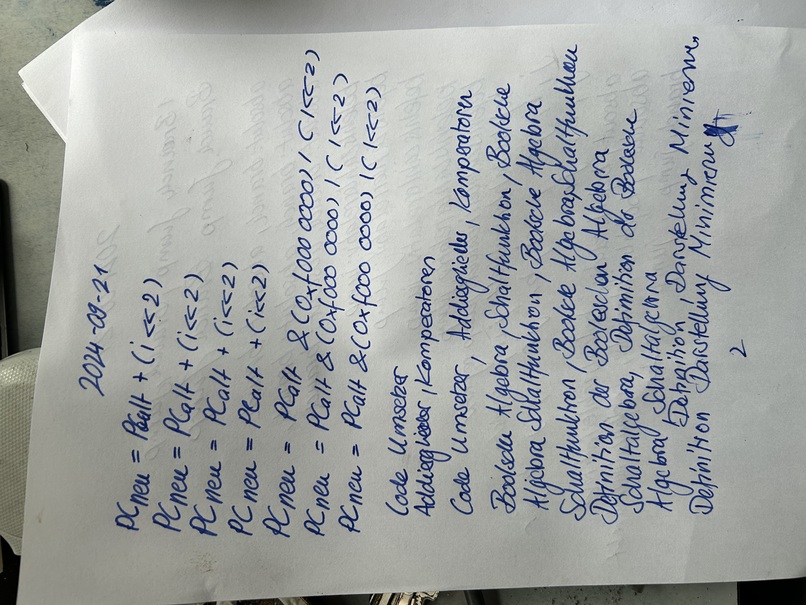 2024-09-21
PCneu = PCalt + (i << 2)
PCneu = PCalt + (i << 2)
PCneu = PCalt + (i << 2)
PCneu = PCalt + (i << 2)
PCneu = PCalt & (0xf000 0000) | (i << 2)
PCneu = PCalt & (0xf000 0000) | (i << 2)
PCneu = PCalt & (0xf000 0000) | (i << 2)
Code Umsetzer
Addierglieder, Komperatoren
Code Umsetzer, Addierglieder, Komperatoren
Boolsche Algebra, Schaltfunktion, Boolsche
Algebra Schaltfunktion, Boolsche Algebra
Schaltfunktion, Boolsce Algebra, Schaltfunktion
Definition der Booleschen Algebra
Schaltalgebra, Definition der Boolesche
Algebra Schaltalgebra
Definition, Darstellung Minimieru.
Definition Darstellung Minimierung
2